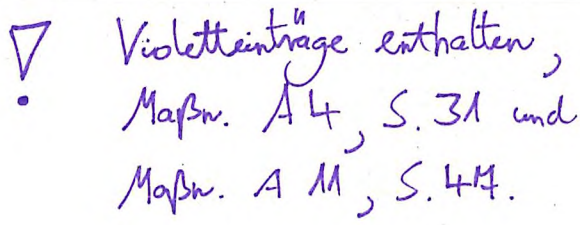 ! Violetteinträge enthalten,
Maßn. A4, S. 31 und
Maßn. A 11, S. 47.